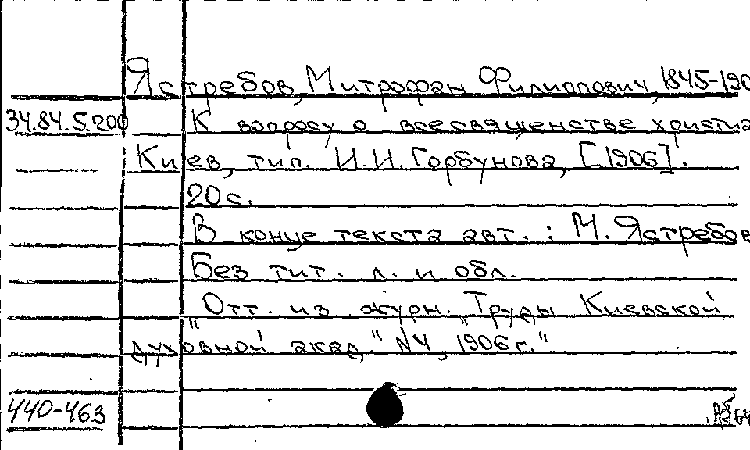 Ястребов, Митрофан Филиппович, 1845-190
34.84.5.200 К вопросу о всесвященстве христиа
Киев, тип. И.И. Горбунова, [1906].
20 с.
В конце текста авт.: М. Ястребов
Без тит. л. и обл.
"Отт. из журн. "Труды Киевской
духовной акад." №4, 1906 г."
440-463